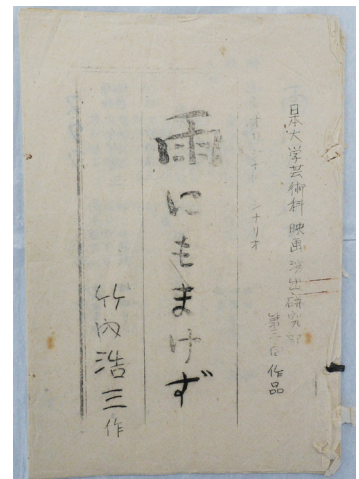 日本大学芸術科 映画演出研究部
作品
オリジナル シナリオ
雨にもまけず
竹内浩三作